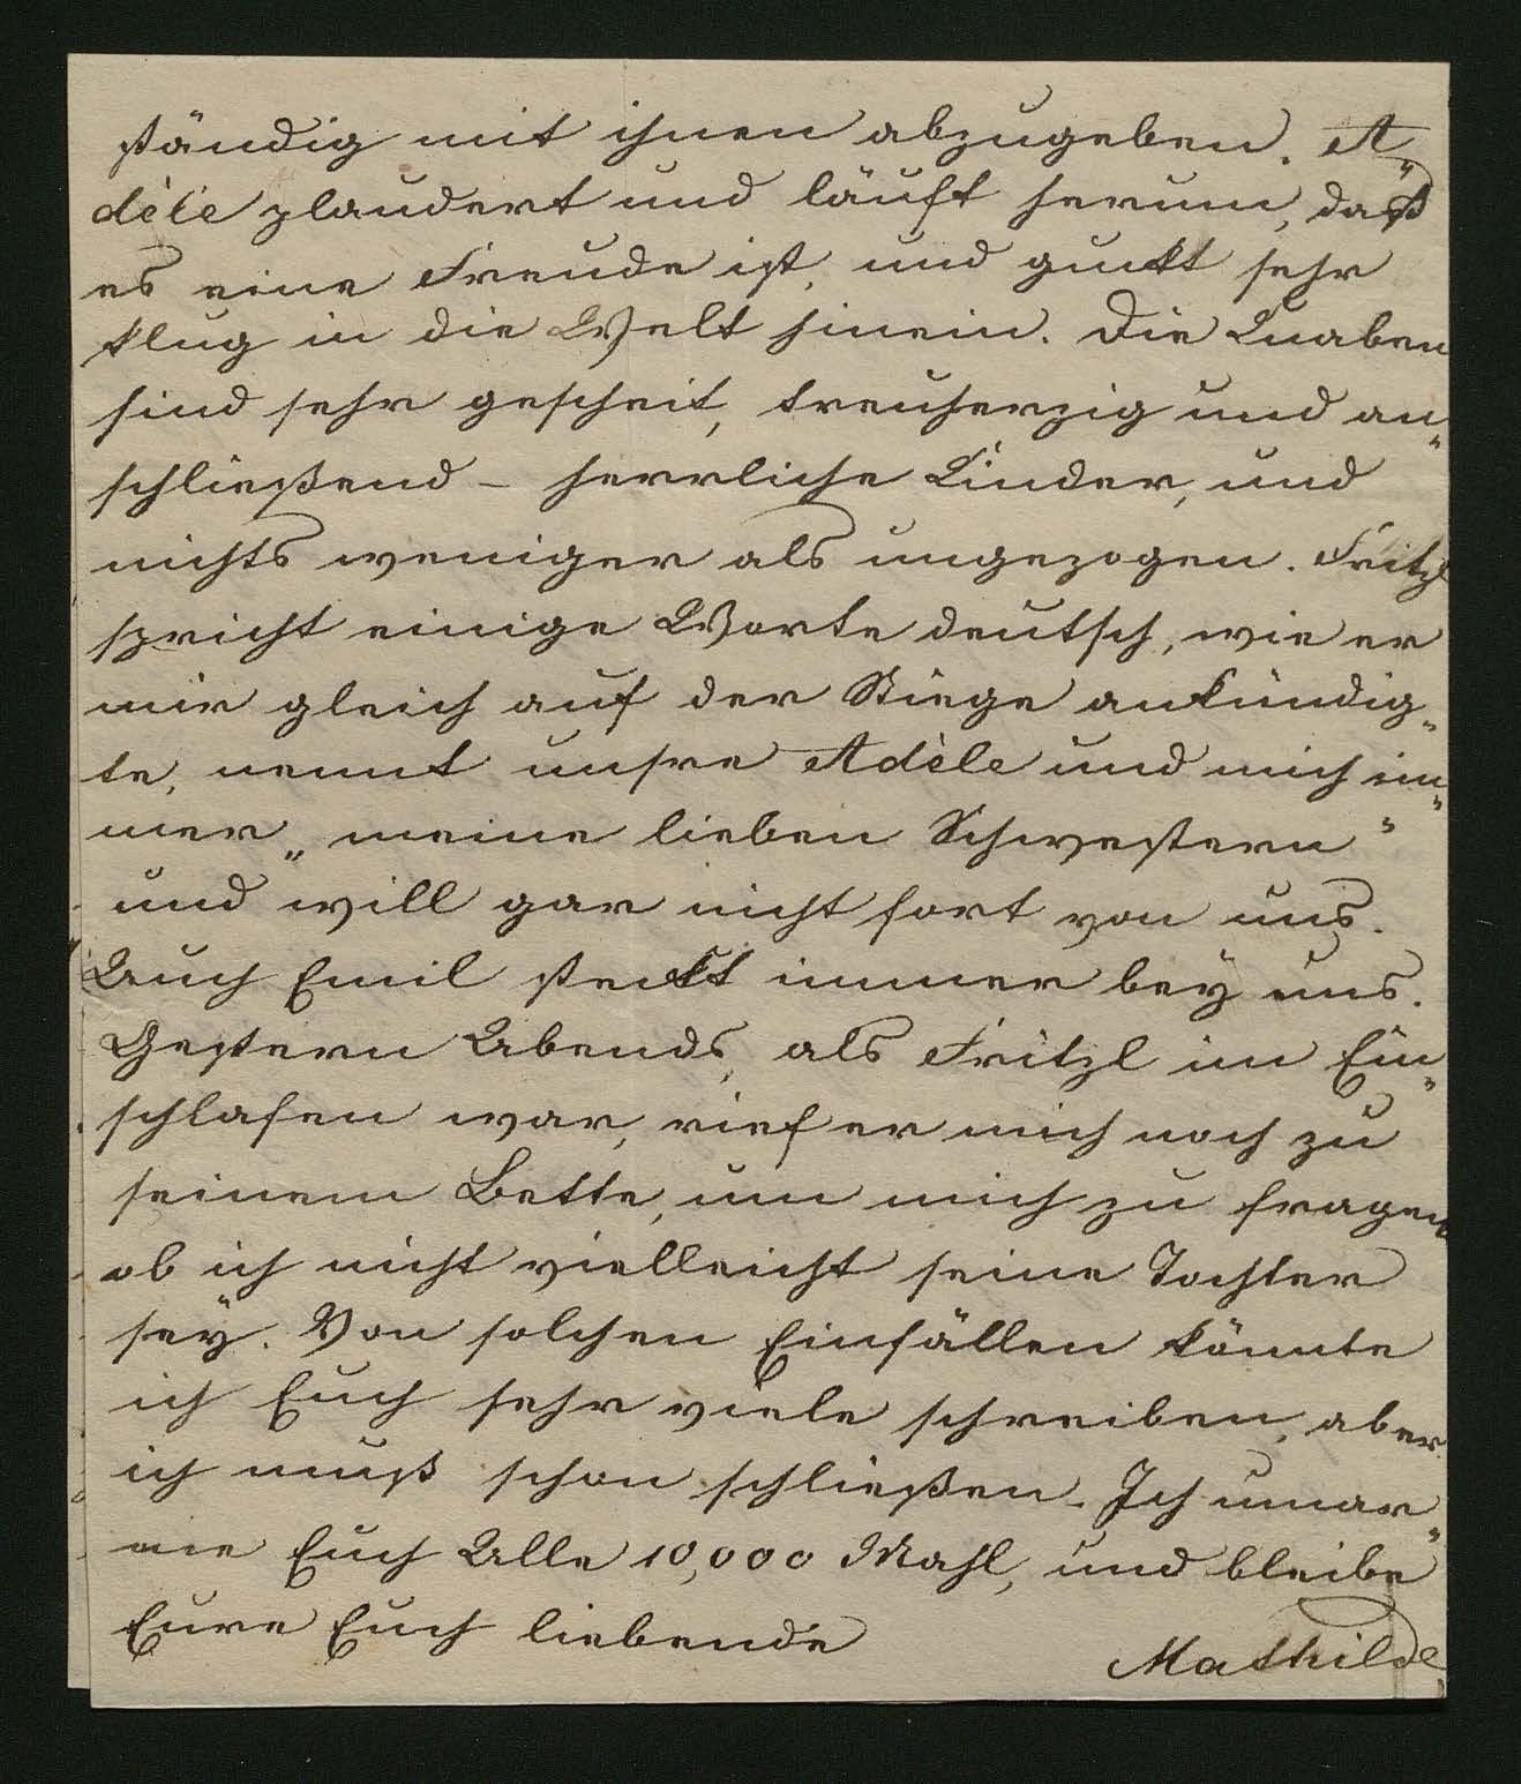 ständig mit ihnen abzugeben. A„
dèle plaudert und läuft herum, daß
es eine Freude ist, und guckt sehr
klug in die Welt hinein. Die Knaben
sind sehr gescheit, treuherzig und an„
schließend – herrliche Kinder, und
nichts weniger als ungezogen. Fritzl
spricht einige Worte deutsch, wie er
mir gleich auf der Stiege ankündig„
te, nennt unsre Adèle und mich im„
mer „meine lieben Schwestern“
und will gar nicht fort von uns.
Auch Emil steckt immer bey uns.
Gestern Abends, als Fritzl im Ein„
schlafen war, rief er mich noch zu
seinem Bette, um mich zu fragen
ob ich nicht vielleicht seine Tochter
sey. Von solchen Einfällen könnte
ich Euch sehr viele schreiben, aber
ich muß schon schließen. Ich umar„
me Euch Alle 10,000 Mahl, und bleibe
Eure Euch liebende
Mathilde